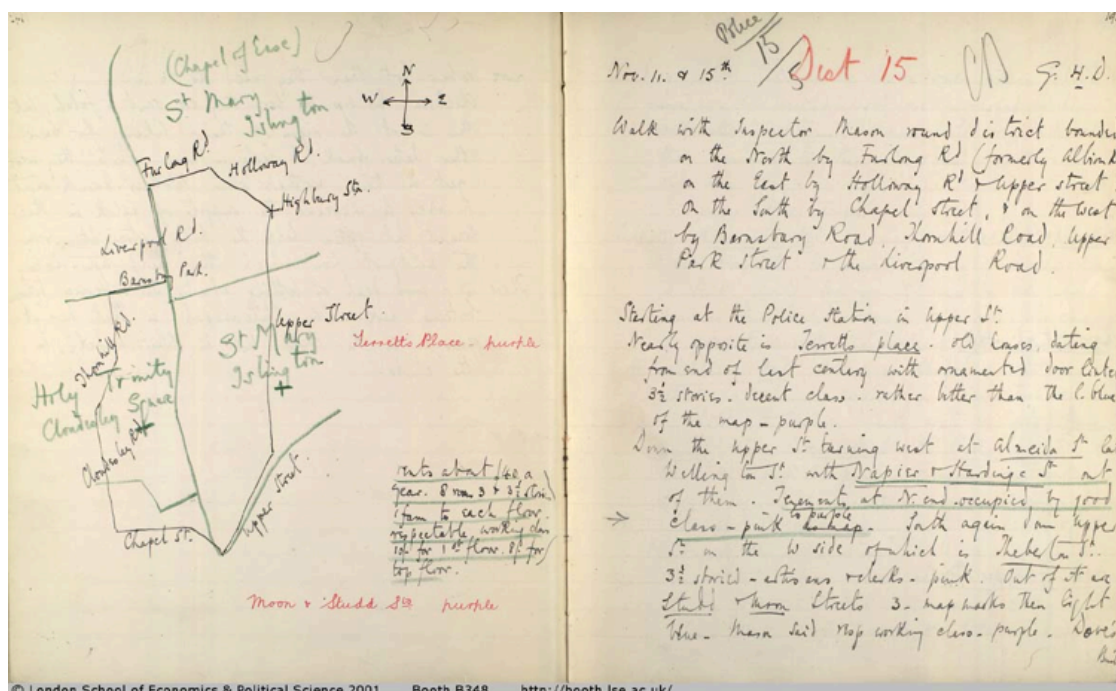 (Chapel of Ease)
St Mary
Islington
N
W
E
S
Furlong Rd
Holloway Rd.
Highbury Stn.
Liverpool Rd.
Barnsby Park.
Upper Street.
St Mary
Islington
Terretts Place - purple
Thornhill Rd.
Holy Trinity
Cloudesley Square
Cloudesley Rd
rents about £40 a
year. 8 rms 3 & 3½ stories
1 fam to each floor.
respectable working class
10/- for 1st floor. 8/- for
top floor.
Chapel St.
Upper Street.
Moon & Studd Sts purple
Police
15
5
Dist 15
Nov. 11. & 15th
G. H. D.
Walk with Inspector Mason round district bounded
on the North by Furlong Rd (formerly Albion
on the East by Holloway Rd & Upper Street
on the South by Chapel Street, & on the West
by Barnsbury Road, Thornhill Road, Upper
Park Street & the Liverpool Road.
Starting at the Police Station in Upper St.
Nearly opposite is Terretts place. old houses, dating
from end of last century with ornamented door
3½ stories. decent class. rather better than the l. blue
of the map - purple.
Down the Upper St turning west at Almeida St
Wellington St. with Napier & Hardinge St out
of them. Tenements at N. end occupied by good
class - pink to purple. South again down Upper
St on the W side of which is Theberton St.
3½ storied - artisans & clerks - pink. Out of it are
Studd & Moon Streets 3 - map marks them light
blue - Mason said resp working class - purple.
© London School of Economics & Political Science 2001 Booth B348 http://booth.lse.ac.uk/